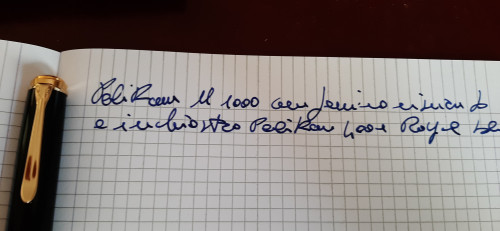 Pelikan M 1000 con pennino rivisitato
e inchiostro Pelikan 4001 Royal